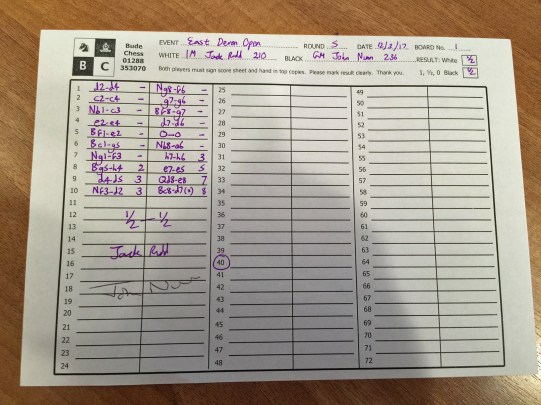 Bude
Chess
01288
353070
B C
EVENT East Devon Open ROUND 5 DATE 12/3/17 BOARD No. 1
WHITE IM Jack Rudd 210 BLACK GM John Nunn 236 RESULT: White ½
Both players must sign score sheet and hand in top copies. Please mark result clearly. Thank you. 1, ½, 0 Black ½
1 d2-d4 – Ng8-f6 –
2 c2-c4 – g7-g6 –
3 Nb1-c3 – Bf8-g7 –
4 e2-e4 – d7-d6 –
5 Bf1-e2 – 0–0 –
6 Bc1-g5 – Nb8-a6 –
7 Ng1-f3 – h7-h6 3
8 Bg5-h4 2 e7-e5 5
9 d4-d5 3 Qd8-e8 7
10 Nf3-d2 3 Bc8-d7(=) 8
11
12 ½ – ½
13
14
15 Jack Rudd
16
17
18 John Nunn
19
20
21
22
23
24
25
26
27
28
29
30
31
32
33
34
35
36
37
38
39
40
41
42
43
44
45
46
47
48
49
50
51
52
53
54
55
56
57
58
59
60
61
62
63
64
65
66
67
68
69
70
71
72